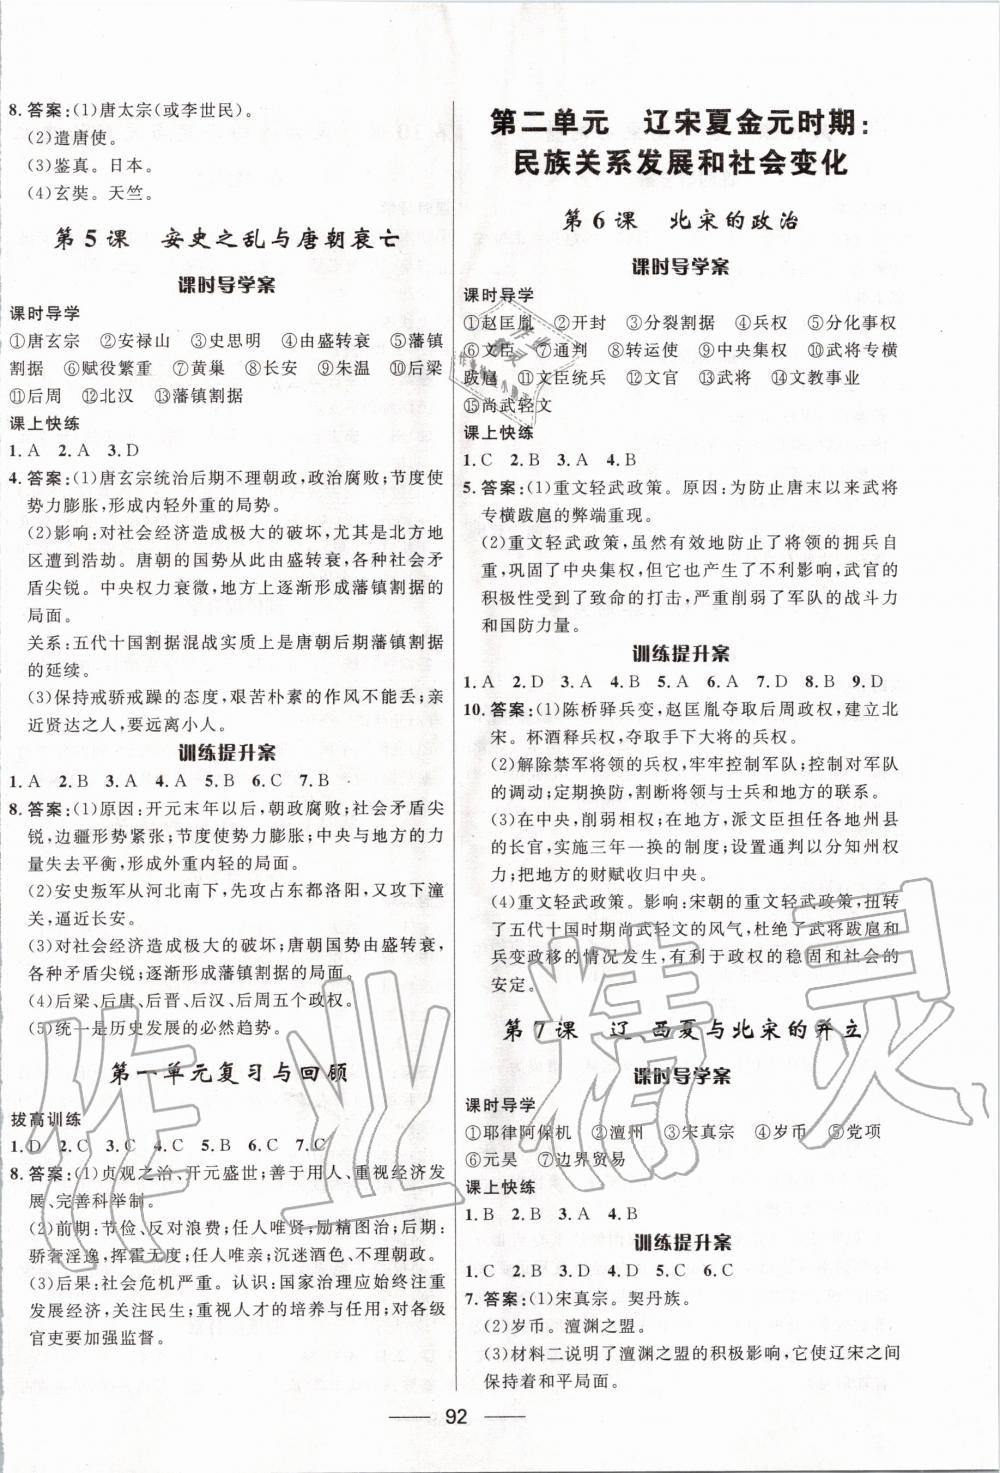 8. 答案:(1)唐太宗(或李世民)。
(2)遣唐使。
(3)鉴真。日本。
(4)玄奘。天竺。
第5课 安史之乱与唐朝衰亡
课时导学案
课时导学
①唐玄宗 ②安禄山 ③史思明 ④由盛转衰 ⑤藩镇
割据 ⑥赋役繁重 ⑦黄巢 ⑧长安 ⑨朱温 ⑩后梁
⑪后周 ⑫北汉 ⑬藩镇割据
课上快练
1. A 2. A 3. D
4. 答案:(1)唐玄宗统治后期不理朝政,政治腐败;节度使
势力膨胀,形成内轻外重的局势。
(2)影响:对社会经济造成极大的破坏,尤其是北方地
区遭到浩劫。唐朝的国势从此由盛转衰,各种社会矛
盾尖锐。中央权力衰微,地方上逐渐形成藩镇割据的
局面。
关系:五代十国割据混战实质上是唐朝后期藩镇割据
的延续。
(3)保持戒骄戒躁的态度,艰苦朴素的作风不能丢;亲
近贤达之人,要远离小人。
训练提升案
1. A 2. B 3. A 4. A 5. B 6. C 7. B
8. 答案:(1)原因:开元末年以后,朝政腐败;社会矛盾尖
锐,边疆形势紧张;节度使势力膨胀;中央与地方的力
量失去平衡,形成外重内轻的局面。
(2)安史叛军从河北南下,先攻占东都洛阳,又攻下潼
关,逼近长安。
(3)对社会经济造成极大的破坏;唐朝国势由盛转衰,
各种矛盾尖锐;逐渐形成藩镇割据的局面。
(4)后梁、后唐、后晋、后汉、后周五个政权。
(5)统一是历史发展的必然趋势。
第一单元复习与回顾
拔高训练
1. D 2. C 3. C 4. C 5. B 6. C 7. C
8. 答案:(1)贞观之治、开元盛世;善于用人、重视经济发
展、完善科举制。
(2)前期:节俭、反对浪费;任人唯贤,励精图治;后期:
骄奢淫逸,挥霍无度;任人唯亲;沉迷酒色、不理朝政。
(3)后果:社会危机严重。认识:国家治理应始终注重
发展经济,关注民生;重视人才的培养与任用;对各级
官吏要加强监督。
第二单元 辽宋夏金元时期:
民族关系发展和社会变化
第6课 北宋的政治
课时导学案
课时导学
①赵匡胤 ②开封 ③分裂割据 ④兵权 ⑤分化事权
⑥文臣 ⑦通判 ⑧转运使 ⑨中央集权 ⑩武将专横
跋扈 ⑪文臣统兵 ⑫文官 ⑬武将 ⑭文教事业
⑮尚武轻文
课上快练
1. C 2. B 3. A 4. B
5. 答案:(1)重文轻武政策。原因:为防止唐末以来武将
专横跋扈的弊端重现。
(2)重文轻武政策,虽然有效地防止了武将的拥兵自
重,巩固了中央集权,但它也产生了不利影响,武官的
积极性受到了致命的打击,严重削弱了军队的战斗力
和国防力量。
训练提升案
1. A 2. D 3. A 4. C 5. A 6. A 7. D 8. B 9. D
10. 答案:(1)陈桥驿兵变,赵匡胤夺取后周政权,建立北
宋。杯酒释兵权,夺取手下大将的兵权。
(2)解除禁军将领兵权,牢牢控制军队;控制军队
的调动;定期换防,割断将领与士兵和地方的联系。
(3)在中央,削弱相权;在地方,派文臣担任各地州县
的长官,实施三年一换的制度;设置通判以分知州权
力;把地方的财赋收归中央。
(4)重文轻武政策。影响:宋朝的重文轻武政策,扭转
了五代十国时期尚武轻文的风气,杜绝了武将跋扈和
兵变政移的情况发生,有利于政权的稳固和社会的
安定。
第7课 辽、西夏与北宋的并立
课时导学案
课时导学
①耶律阿保机 ②澶州 ③宋真宗 ④岁币 ⑤党项
⑥元昊 ⑦边界贸易
课上快练
1. B 2. B 3. A 4. B
训练提升案
1. C 2. B 3. D 4. D 5. C 6. C
7. 答案:(1)宋真宗。契丹族。
(2)岁币。澶渊之盟。
(3)材料二说明了澶渊之盟的积极影响,它使辽宋之间
保持着和平局面。
92
作业精灵